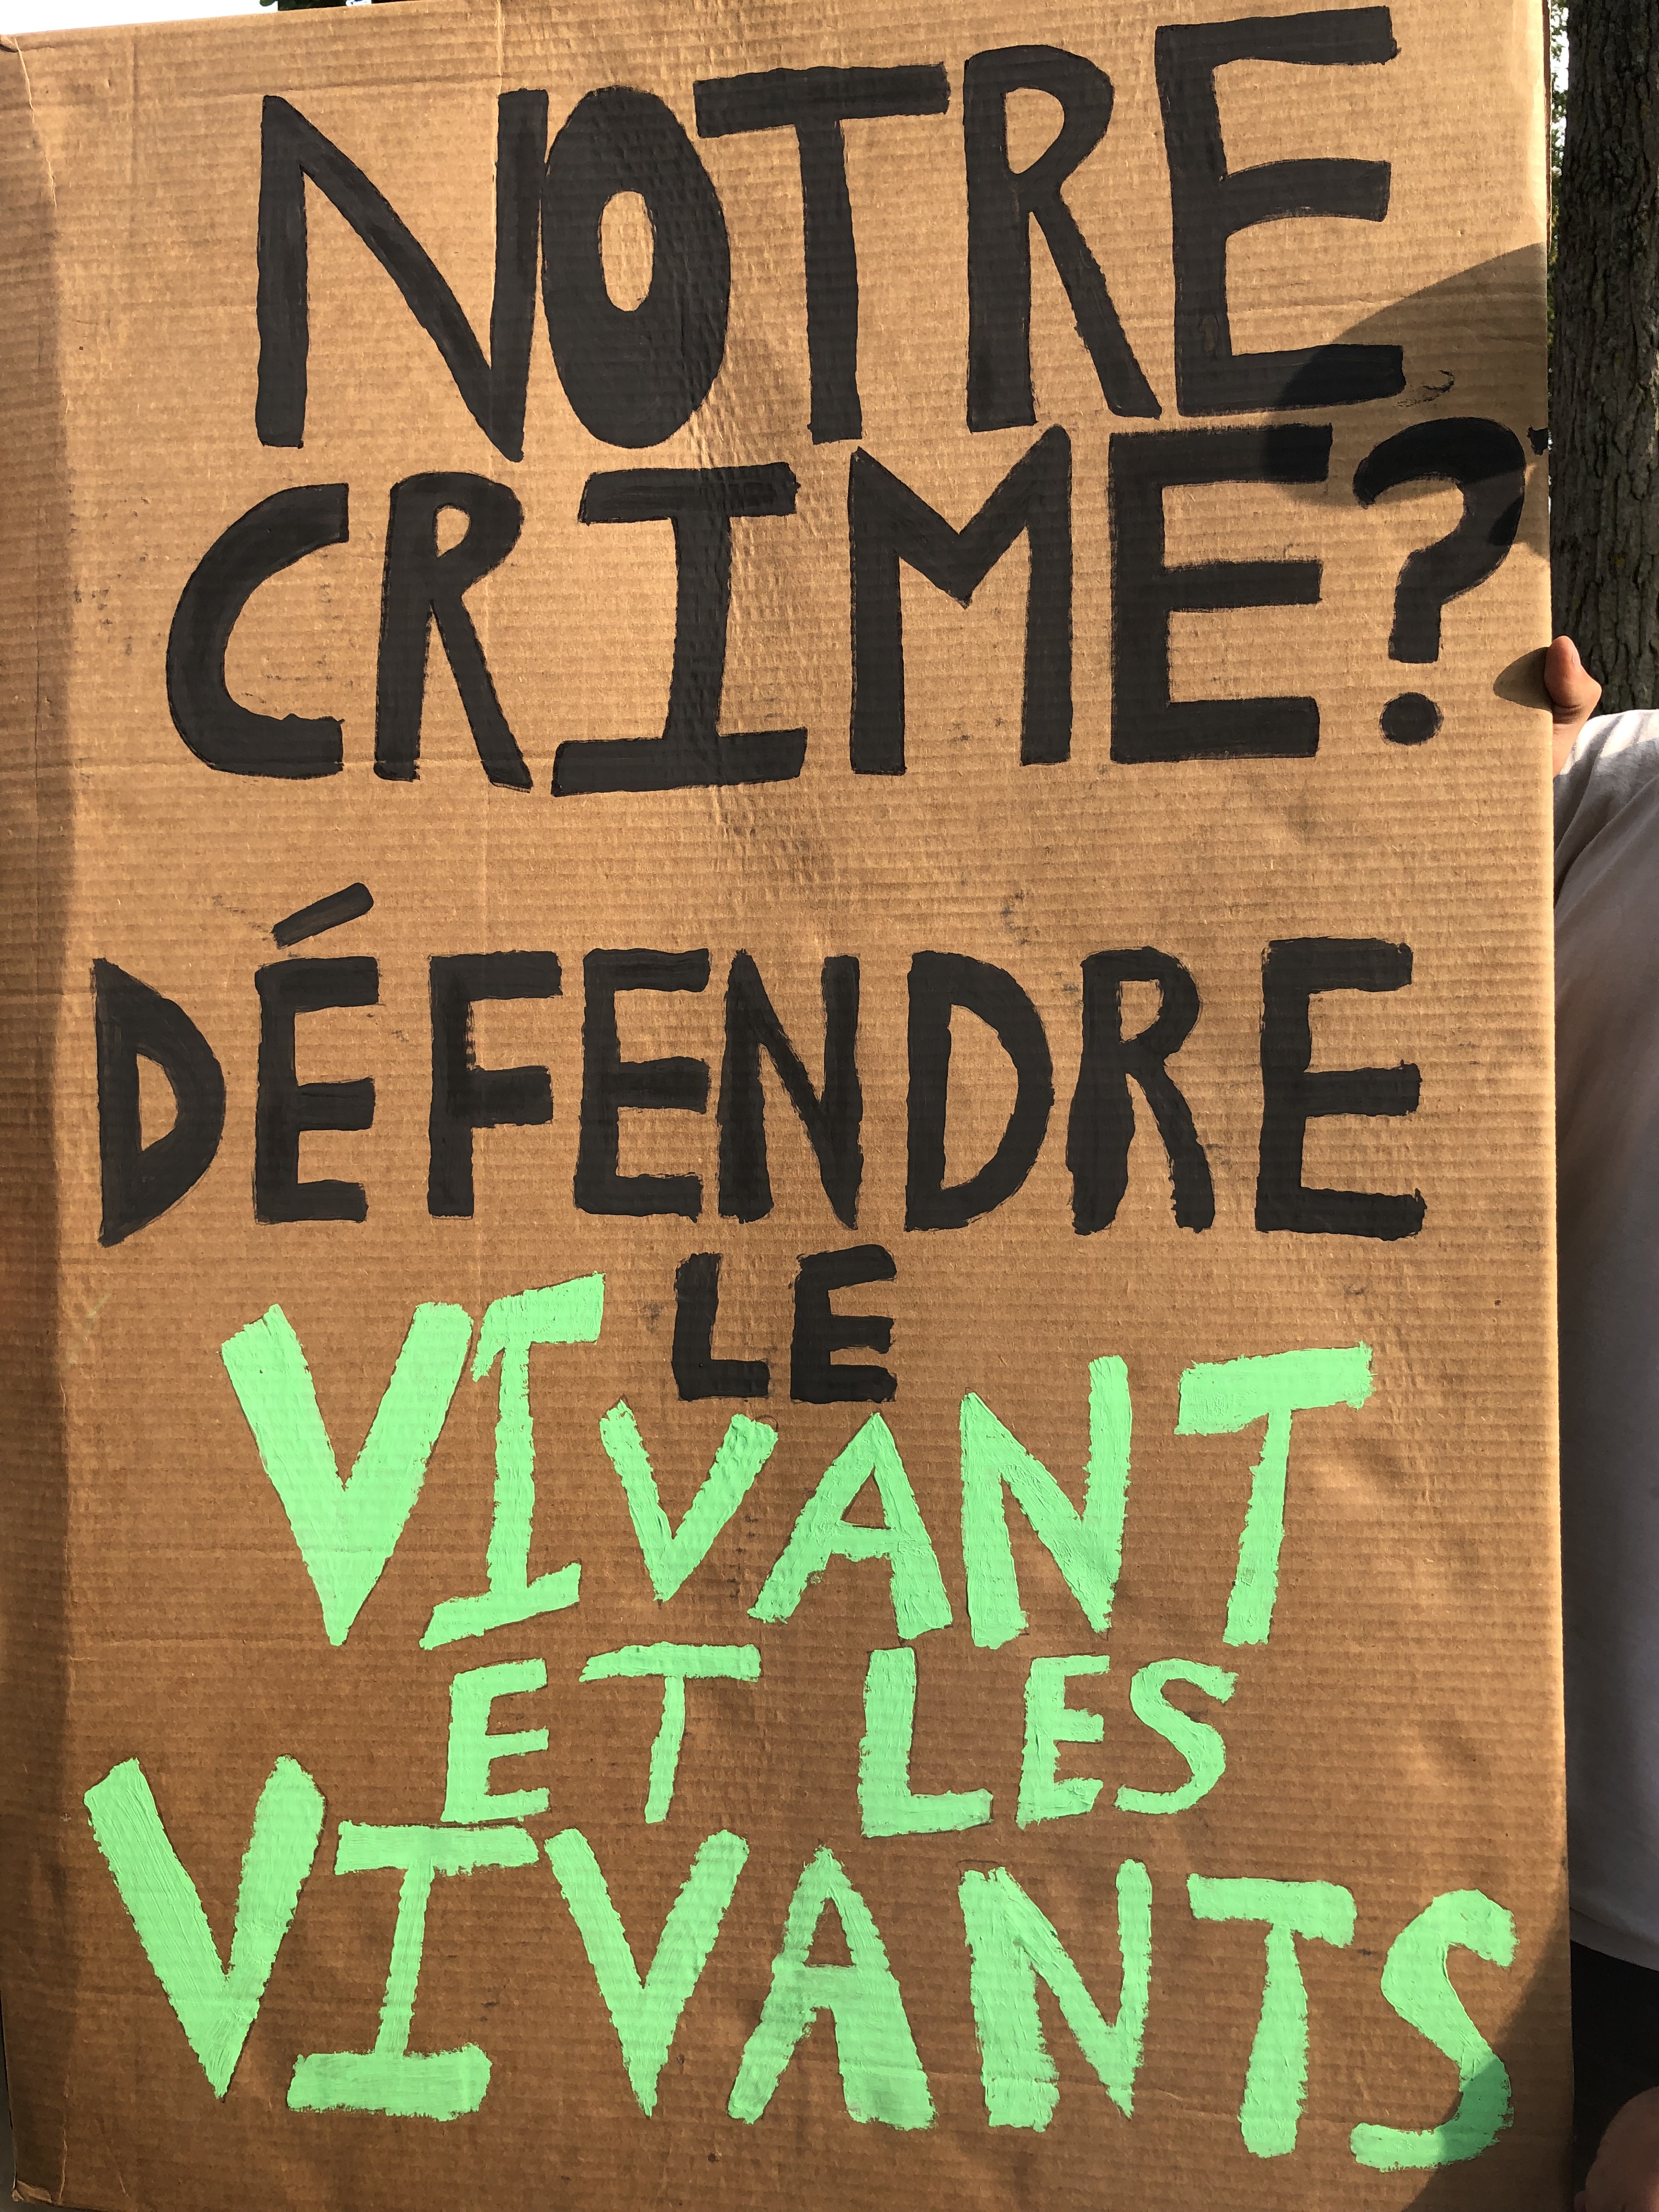 NOTRE
CRIME?
DÉFENDRE
LE
VIVANT
ET LES
VIVANTS